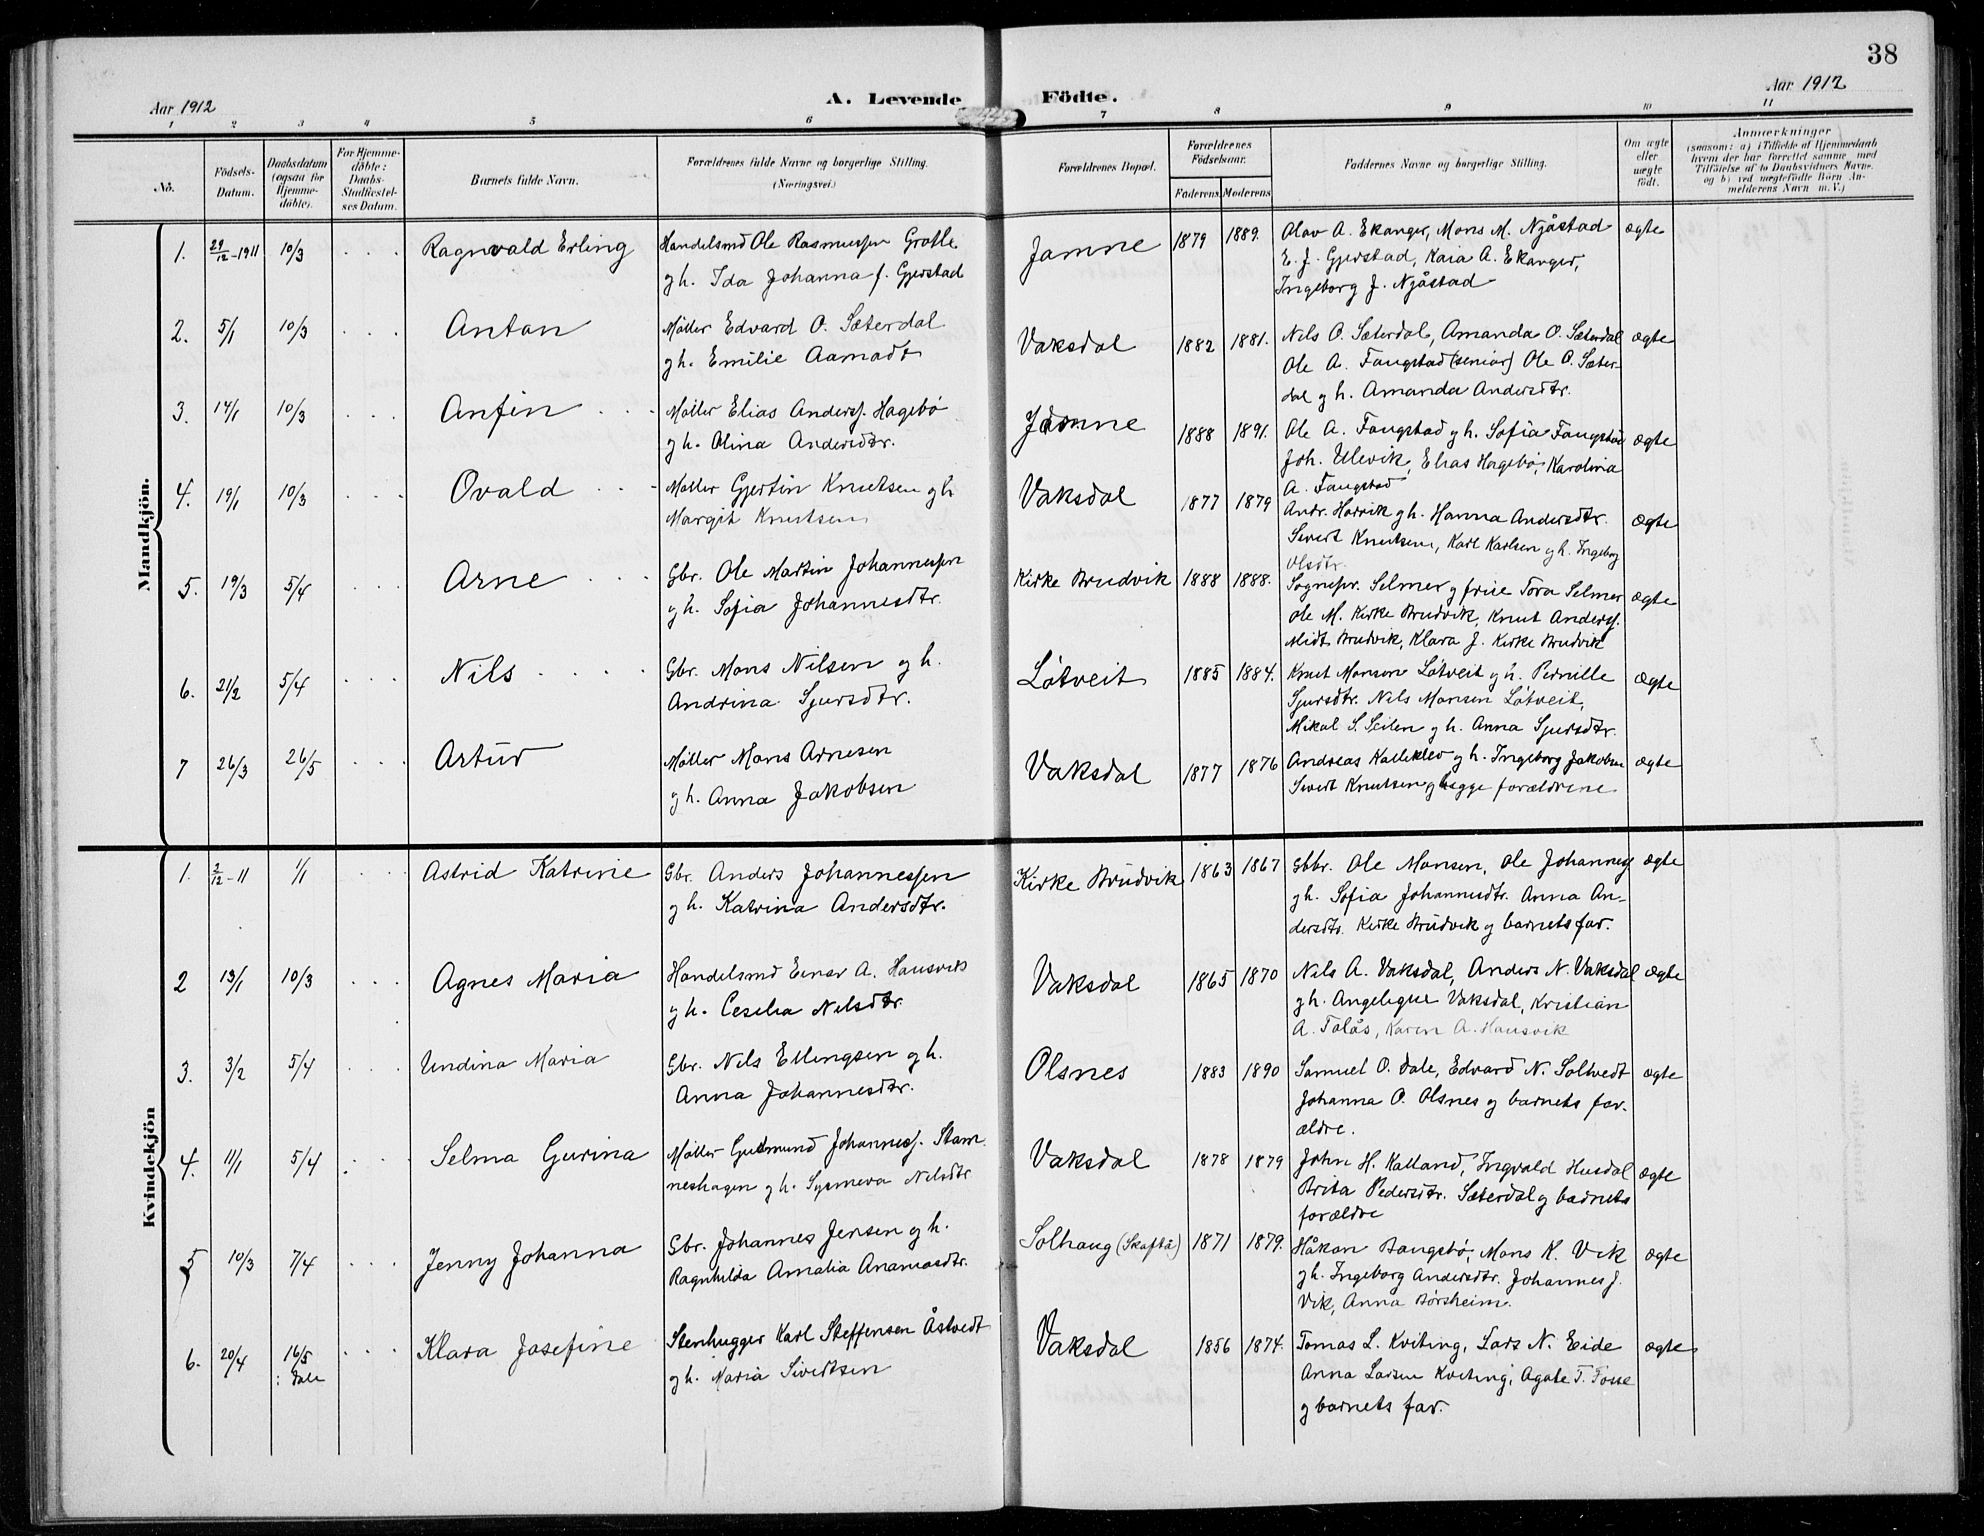 38
Aar 1912
A. Levende
Födte.
Aar 1912
1 2 3 4 5 6 7 8 9 10 11
No.
Födsels-
Datum.
Daabsdatum
(ogsaa for
Hjemme-
døbte).
For Hjemme-
døbte:
Daabs-
Stadfæstel-
ses Datum.
Barnets fulde Navn.
Forældrenes fulde Navne og borgerlige Stilling.
(Næringsvei.)
Forældrenes Bopæl.
Forældrenes
Födselsaar.
Faderens. Moderens.
Faddernes Navne og borgerlige Stilling.
Om ægte
eller
uægte
födt.
Anmærkninger
(saasom: a) i Tilfælde af Hjemmedaab
hvem der har forrettet samme med
Tilföielse af to Daabsvidners Navne.
og b) ved uægtefödte Börn An-
melderens Navn m. V.)
Mandkjön.
1. 29/12-1911 10/3 Ragnvald Erling
Handelsmd Ole Rasmussen Grotle
g h. Ida Johanna f. Gjerstad
Jamne 1879 1889.
Olav A. Ekanger, Mons M. Njåstad
E. J. Gjerstad, Kaia A. Ekanger,
Ingeborg J. Njåstad
ægte
2. 5/1 10/3 Anton
Møller Edvard O. Sæterdal
g h. Emilie Aamodt
Vaksdal 1882 1881.
Nils O. Sæterdal, Amanda O. Sæterdal
Ole A. Fangstad (senior) Ole O. Sæter-
dal g h. Amanda Andersdtr.
ægte
3. 14/1 10/3 Anfin
Møller Elias Anderss. Hagebø
g h. Olina Andersdtr.
Jamne 1888 1891.
Ole A. Fangstad g h. Sofia Fangstad
Joh. Ulevik, Elias Hagebø, Karolina
A. Fangstad
ægte
4. 19/1 10/3 Ovald
Møller Gjertin Knutsen g h
Margit Knutsen
Vaksdal 1877 1879
Andr. Horvik g h. Hanna Andersdtr.
Sivert Knutsen, Karl Karlsen g h. Ingeborg
Olsdtr.
ægte
5. 19/3 5/4 Arne
Gbr. Ole Martin Johannessen
g h. Sofia Johannesdtr.
Kirke Brudvik 1888 1888.
Sognepr. Selmer g frue Tora Selmer
Ole M. Kirke Brudvik, Knut Anderss.
Midt Brudvik, Klara J. Kirke Brudvik
ægte
6. 21/2 5/4 Nils
Gbr. Mons Nilsen g h.
Andrina Sjursdtr.
Løtveit 1885 1884.
Knut Monsen Løtveit g h. Pernille
Sjursdtr. Nils Monsen Løtveit,
Mikal S. Seilen g h. Anna Sjursdtr.
ægte
7 26/3 26/5 Artur
Møller Mons Arnesen
g h. Anna Jakobsen
Vaksdal 1877 1876
Andreas Kalleklev g h. Ingeborg Jakobsen
Sivert Knutsen g begge forældrene
ægte
Kvindekjön
1. 2/12-11 1/1 Astrid Katrine
Gbr. Anders Johannessen
g h. Katrina Andersdtr.
Kirke Brudvik 1863 1867
Gbbr. Ole Monsen, Ole Johanness.
g h. Sofia Johannesdtr. Anna An-
dersdtr. Kirke Brudvik g barnets far.
ægte
2 13/1 10/3 Agnes Maria
Handelsmd Einar A. Hausvik
g h. Cesilia Nilsdtr
Vaksdal 1865 1870
Nils A. Vaksdal, Anders N. Vaksdal
g h. Angelique Vaksdal, Kristian
A. Talås, Karen A. Hausvik
ægte
3. 3/2 5/4 Undina Maria
Gbr. Nils Ellingsen g h.
Anna Johannesdtr.
Olsnes 1883 1890
Samuel O. Dale, Edvard N. Soltvedt
Johanna O. Olsnes g barnets for-
ældre.
ægte
4. 11/1 5/4 Selma Gurina
Møller Gudmund Johanness. Stam-
neshagen g h. Synneva Nilsdtr
Vaksdal 1878 1879
John H. Kalland, Ingvald Husdal
Brita Pedersdtr. Sæterdal g barnets
forældre
ægte
5 10/3 7/4 Jenny Johanna
Gbr. Johannes Jensen g h.
Ragnhilda Amalia Anamasdtr.
Solhaug (Skaftå) 1871 1879.
Håkon Bangsbø, Mons K. Vik
g h. Ingeborg Andersdtr. Johannes J.
Vik, Anna Børsheim.
ægte
6. 20/4 16/5 : Dale Klara Josefine
Stenhugger Karl Steffensen Åstvedt
g h. Maria Sivertsen
Vaksdal 1856 1874.
Tomas L. Kviting, Lars N. Eide
Anna Larsen Kviting, Agate T. Fosse
g barnets far.
ægte